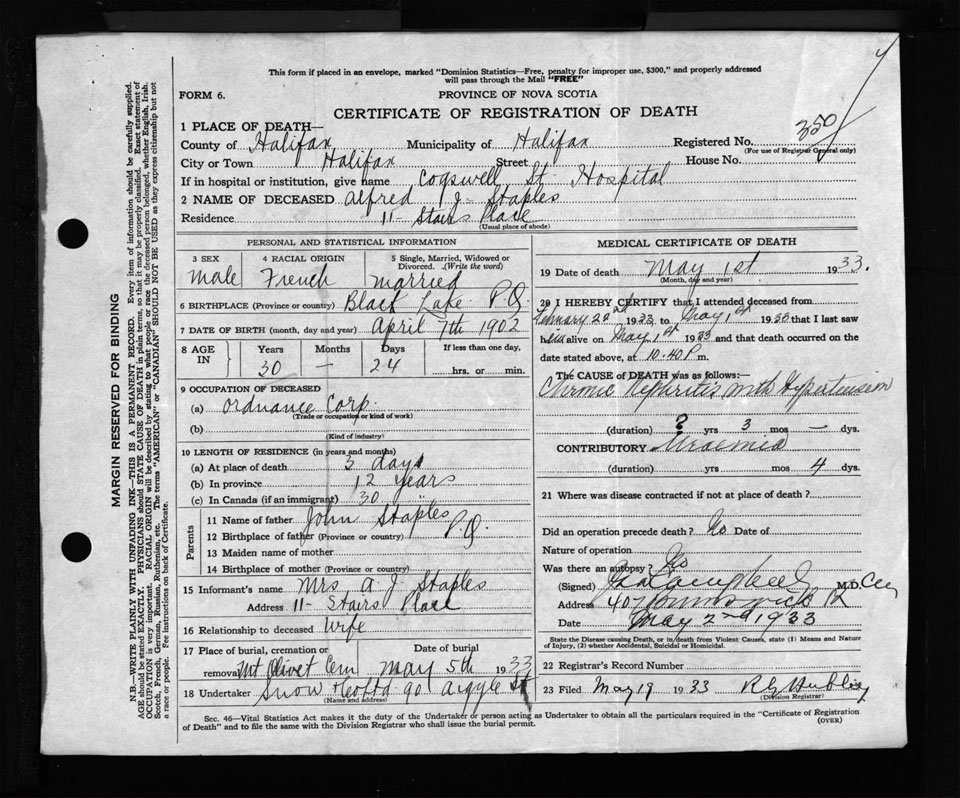 This form if placed in an envelope, marked "Dominion Statistics—Free, penalty for improper use, $300," and properly addressed
will pass through the Mail "FREE"
FORM 6.
PROVINCE OF NOVA SCOTIA
CERTIFICATE OF REGISTRATION OF DEATH
1 PLACE OF DEATH—
350
County of Halifax Municipality of Halifax Registered No.
(For use of Registrar General only)
City or Town Halifax Street House No.
If in hospital or institution, give name Cogswell St. Hospital
2 NAME OF DECEASED Alfred J. Staples
Residence 11- Stairs Place
(Usual place of abode)
PERSONAL AND STATISTICAL INFORMATION
3 SEX 4 RACIAL ORIGIN 5 Single, Married, Widowed or
Divorced. (Write the word)
Male French Married
6 BIRTHPLACE (Province or country) Black Lake P.Q.
7 DATE OF BIRTH (month, day and year) April 7th 1902
8 AGE IN Years Months Days If less than one day,
30 — 24 hrs. or min.
9 OCCUPATION OF DECEASED
(a) Ordnance Corp.
(Trade or occupation or kind of work)
(b)
(Kind of industry)
10 LENGTH OF RESIDENCE (in years and months)
(a) At place of death 3 days
(b) In province 12 years
(c) In Canada (if an immigrant) 30 "
Parents
11 Name of father John Staples
12 Birthplace of father (Province or country) P.Q.
13 Maiden name of mother
14 Birthplace of mother (Province or country)
15 Informant's name Mrs A J Staples
Address 11- Stairs Place
16 Relationship to deceased Wife
17 Place of burial, cremation or Date of burial
removal Mt Olivet Cem May 5th 1933
18 Undertaker Snow & Co Ltd 90 Argyle St
(Name and address)
MEDICAL CERTIFICATE OF DEATH
19 Date of death May 1st 1933.
(Month, day and year)
20 I HEREBY CERTIFY that I attended deceased from
February 22nd 1933 to May 1st 1933 that I last saw
h alive on May 1st 1933 and that death occurred on the
date stated above, at 10.40 P m.
The CAUSE of DEATH was as follows:—
Chronic Nephritis with Hypertension
(duration) ? yrs 3 mos — dys.
CONTRIBUTORY Uraemia
(duration) yrs mos 4 dys.
21 Where was disease contracted if not at place of death?
Did an operation precede death? No Date of
Nature of operation
Was there an autopsy? No
(Signed) M.D.
Address 407 Brunswick St
Date May 2nd 1933
State the Disease causing Death, or in death from Violent Causes, state (1) Means and Nature
of Injury, (2) whether Accidental, Suicidal or Homicidal.
22 Registrar's Record Number
23 Filed May 19 1933
(Division Registrar)
Sec. 46—Vital Statistics Act makes it the duty of the Undertaker or person acting as Undertaker to obtain all the particulars required in the "Certificate of Registration
of Death" and to file the same with the Division Registrar who shall issue the burial permit.
(OVER)
MARGIN RESERVED FOR BINDING
N.B.—WRITE PLAINLY WITH UNFADING INK—THIS IS A PERMANENT RECORD. Every item of information should be carefully supplied.
AGE should be stated EXACTLY. PHYSICIANS should STATE CAUSE OF DEATH in plain terms, so that it may be properly classified. Exact statement of
OCCUPATION is very important. RACIAL ORIGIN will be described by stating to what people or race the deceased person belonged, whether English, Irish,
Scotch, French, German, Russian, Ruthenian, etc. The terms "AMERICAN" or "CANADIAN" SHOULD NOT BE USED as they express citizenship but not
a race or people. See instructions on back of Certificate.